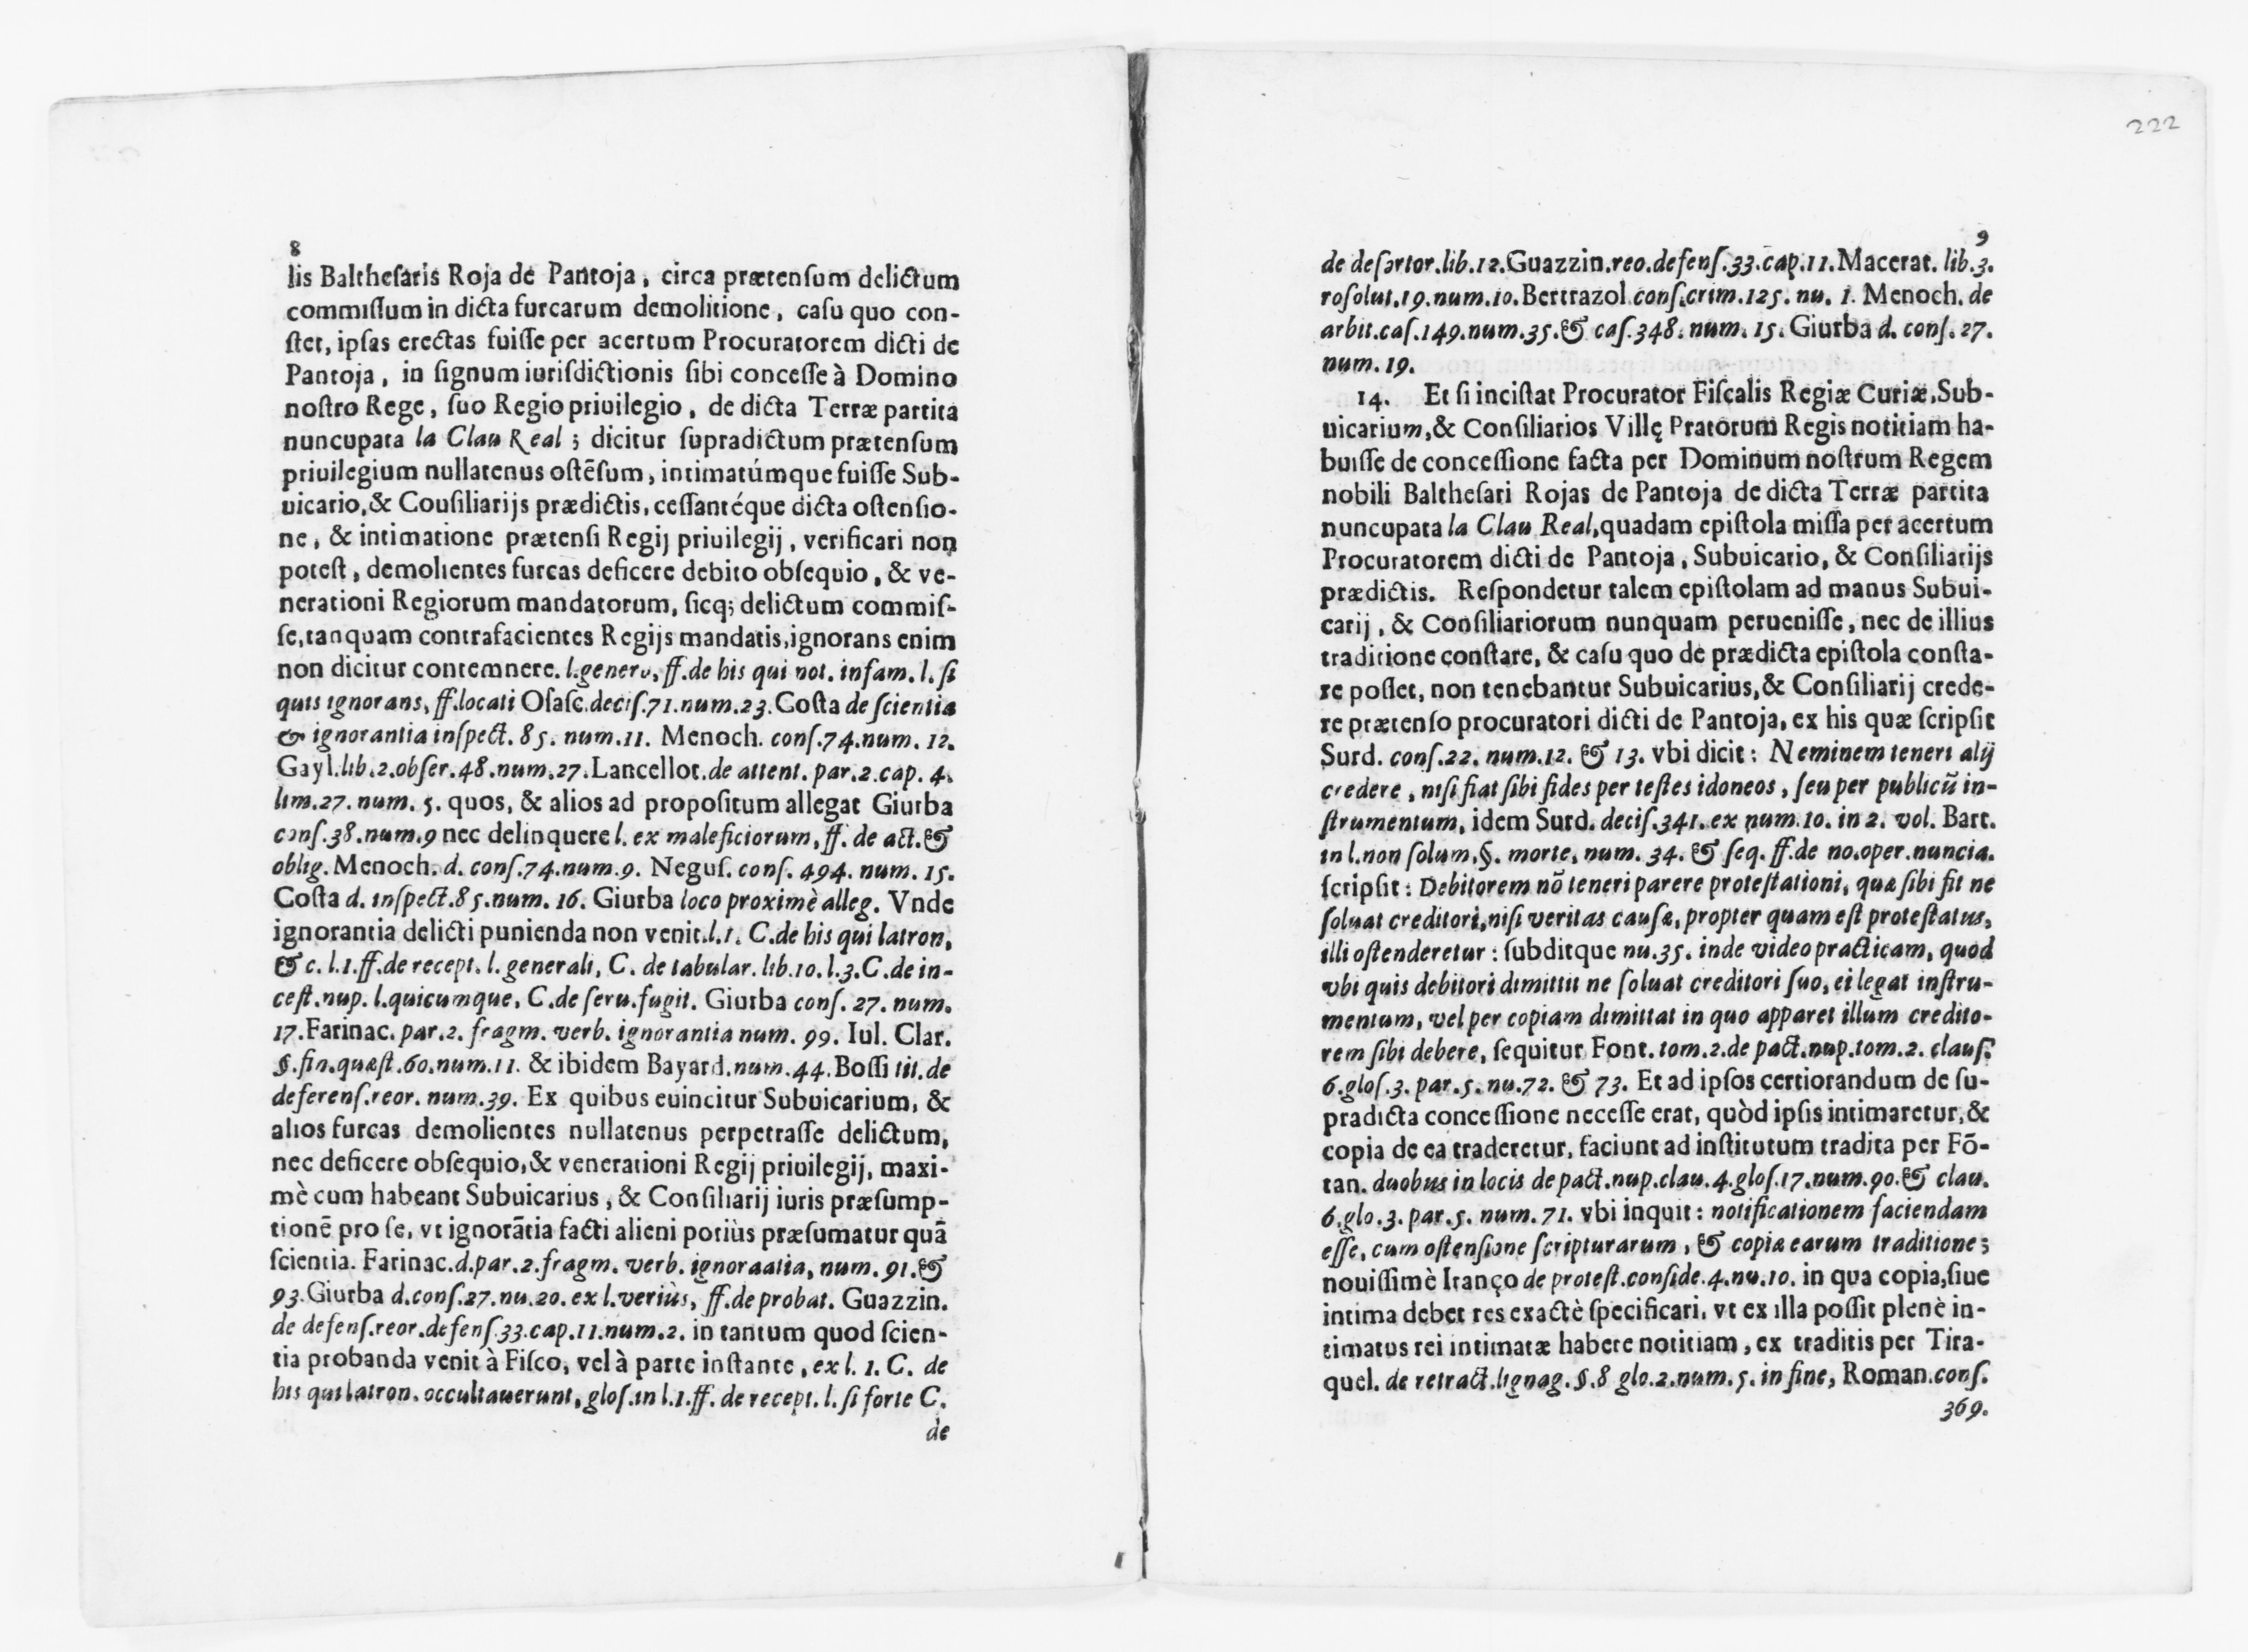 8
lis Balthesaris Roja de Pantoja, circa prætensum delictum
commissum in dicta furcarum demolitione, casu quo con-
stet, ipsas erectas fuisse per acertum Procuratorem dicti de
Pantoja, in signum iurisdictionis sibi concesse à Domino
nostro Rege, suo Regio priuilegio, de dicta Terræ partita
nuncupata la Clau Real; dicitur supradictum prætensum
priuilegium nullatenus ostēsum, intimatúmque fuisse Sub-
uicario, & Cousiliarijs prædictis, cessantéque dicta ostensio-
ne, & intimatione prætensi Regij priuilegij, verificari non
potest, demolientes furcas deficere debito obsequio, & ve-
nerationi Regiorum mandatorum, sicq; delictum commis-
se, tanquam contrafacientes Regijs mandatis, ignorans enim
non dicitur contemnere. l. genero, ff. de his qui not. infam. l. si
quis ignorans, ff. locati Osasc. decis. 71. num. 23. Costa de scientia
& ignorantia inspect. 85. num. 11. Menoch. cons. 74. num. 12.
Gayl. lib. 2. obser. 48. num. 27. Lancellot. de attent. par. 2. cap. 4.
lim. 27. num. 5. quos, & alios ad propositum allegat Giurba
cons. 38. num. 9 nec delinquere l. ex maleficiorum, ff. de act. &
oblig. Menoch. d. cons. 74. num. 9. Negus. cons. 494. num. 15.
Costa d. inspect. 85. num. 16. Giurba loco proximè alleg. Vnde
ignorantia delicti punienda non venit. l. 1. C. de his qui latron,
& c. l. 1. ff. de recept. l. generali, C. de tabular. lib. 10. l. 3. C. de in-
cest. nup. l. quicumque, C. de seru. fugit. Giurba cons. 27. num.
17. Farinac. par. 2. fragm. verb. ignorantia num. 99. Iul. Clar.
§. fin. quæst. 60. num. 11. & ibidem Bayard. num. 44. Bossi tit. de
deferens. reor. num. 39. Ex quibus euincitur Subuicarium, &
alios furcas demolientes nullatenus perpetrasse delictum,
nec deficere obsequio, & venerationi Regij priuilegij, maxi-
mè cum habeant Subuicarius, & Consiliarij iuris præsump-
tionē pro se, vt ignorātia facti alieni potiùs præsumatur quā
scientia. Farinac. d. par. 2. fragm. verb. ignoraatia, num. 91. &
93. Giurba d. cons. 27. nu. 20. ex l. veriùs, ff. de probat. Guazzin.
de defens. reor. defens. 33. cap. 11. num. 2. in tantum quod scien-
tia probanda venit à Fisco, vel à parte instante, ex l. 1. C. de
his qui latron. occultauerunt, glos. in l. 1. ff. de recept. l. si forte C.
de
222
9
de desertor. lib. 12. Guazzin. reo. defens. 33. cap. 11. Macerat. lib. 3.
rosolut. 19. num. 10. Bertrazol cons. crim. 125. nu. 1. Menoch. de
arbit. cas. 149. num. 35. & cas. 348. num. 15. Giurba d. cons. 27.
num. 19.
14. Et si incistat Procurator Fiscalis Regiæ Curiæ, Sub-
uicarium, & Consiliarios Villę Pratorum Regis notitiam ha-
buisse de concessione facta per Dominum nostrum Regem
nobili Balthesari Rojas de Pantoja de dicta Terræ partita
nuncupata la Clau Real, quadam epistola missa per acertum
Procuratorem dicti de Pantoja, Subuicario, & Consiliarijs
prædictis. Respondetur talem epistolam ad manus Subui-
carij, & Consiliariorum nunquam peruenisse, nec de illius
traditione constare, & casu quo de prædicta epistola consta-
re posset, non tenebantur Subuicarius, & Consiliarij crede-
re prætenso procuratori dicti de Pantoja, ex his quæ scripsit
Surd. cons. 22. num. 12. & 13. vbi dicit: Neminem teneri alij
credere, nisi fiat sibi fides per testes idoneos, seu per publicū in-
strumentum, idem Surd. decis. 341. ex num. 10. in 2. vol. Bart.
in l. non solum, §. morte, num. 34. & seq. ff. de no. oper. nuncia.
scripsit: Debitorem nō teneri parere protestationi, quæ sibi fit ne
soluat creditori, nisi veritas causæ, propter quam est protestatus,
illi ostenderetur: subditque nu. 35. inde video practicam, quod
vbi quis debitori dimittit ne soluat creditori suo, ei legat instru-
mentum, vel per copiam dimittat in quo apparet illum credito-
rem sibi debere, sequitur Font. tom. 2. de pact. nup. tom. 2. claus.
6. glos. 3. par. 5. nu. 72. & 73. Et ad ipsos certiorandum de su-
pradicta concessione necesse erat, quòd ipsis intimaretur, &
copia de ea traderetur, faciunt ad institutum tradita per Fō-
tan. duobus in locis de pact. nup. clau. 4. glos. 17. num. 90. & clau.
6. glo. 3. par. 5. num. 71. vbi inquit: notificationem faciendam
esse, cum ostensione scripturarum, & copiæ earum traditione;
nouissimè Iranço de protest. conside. 4. nu. 10. in qua copia, siue
intima debet res exactè specificari, vt ex illa possit plenè in-
timatus rei intimatæ habere notitiam, ex traditis per Tira-
quel. de retract. lignag. §. 8 glo. 2. num. 5. in fine, Roman. cons.
369.